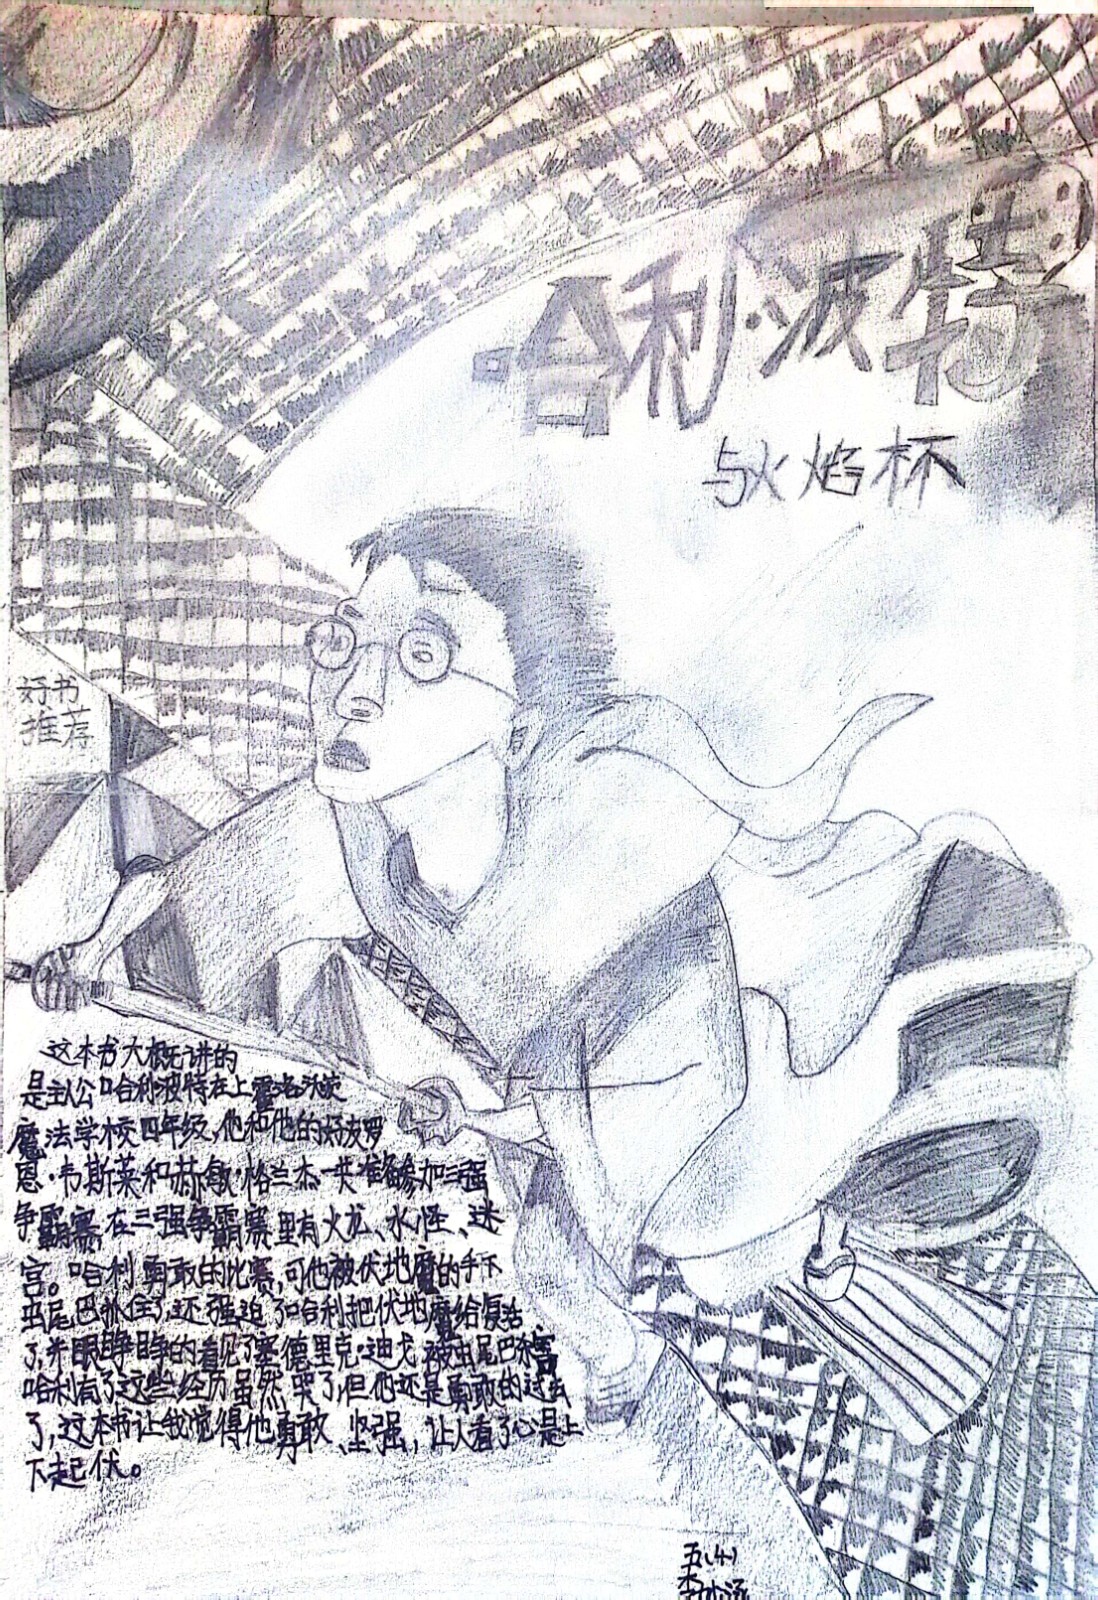 哈利·波特
与火焰杯
好书
推荐
这本书大概讲的
是主人公哈利·波特在上霍格沃茨
魔法学校四年级,他和他的好友罗
恩·韦斯莱和赫敏·格兰杰一共准备参加三强
争霸赛,在三强争霸赛里有火龙、水怪、迷
宫。哈利勇敢的比赛,可他被伏地魔的手下
虫尾巴抓住了,还强迫了哈利把伏地魔给复活
了,并眼睁睁的看见了塞德里克·迪戈被虫尾巴杀害
哈利有了这些经历虽然哭了,但他还是勇敢的过去
了,这本书让我觉得他勇敢、坚强,让人看了心是上
下起伏。
五(4)